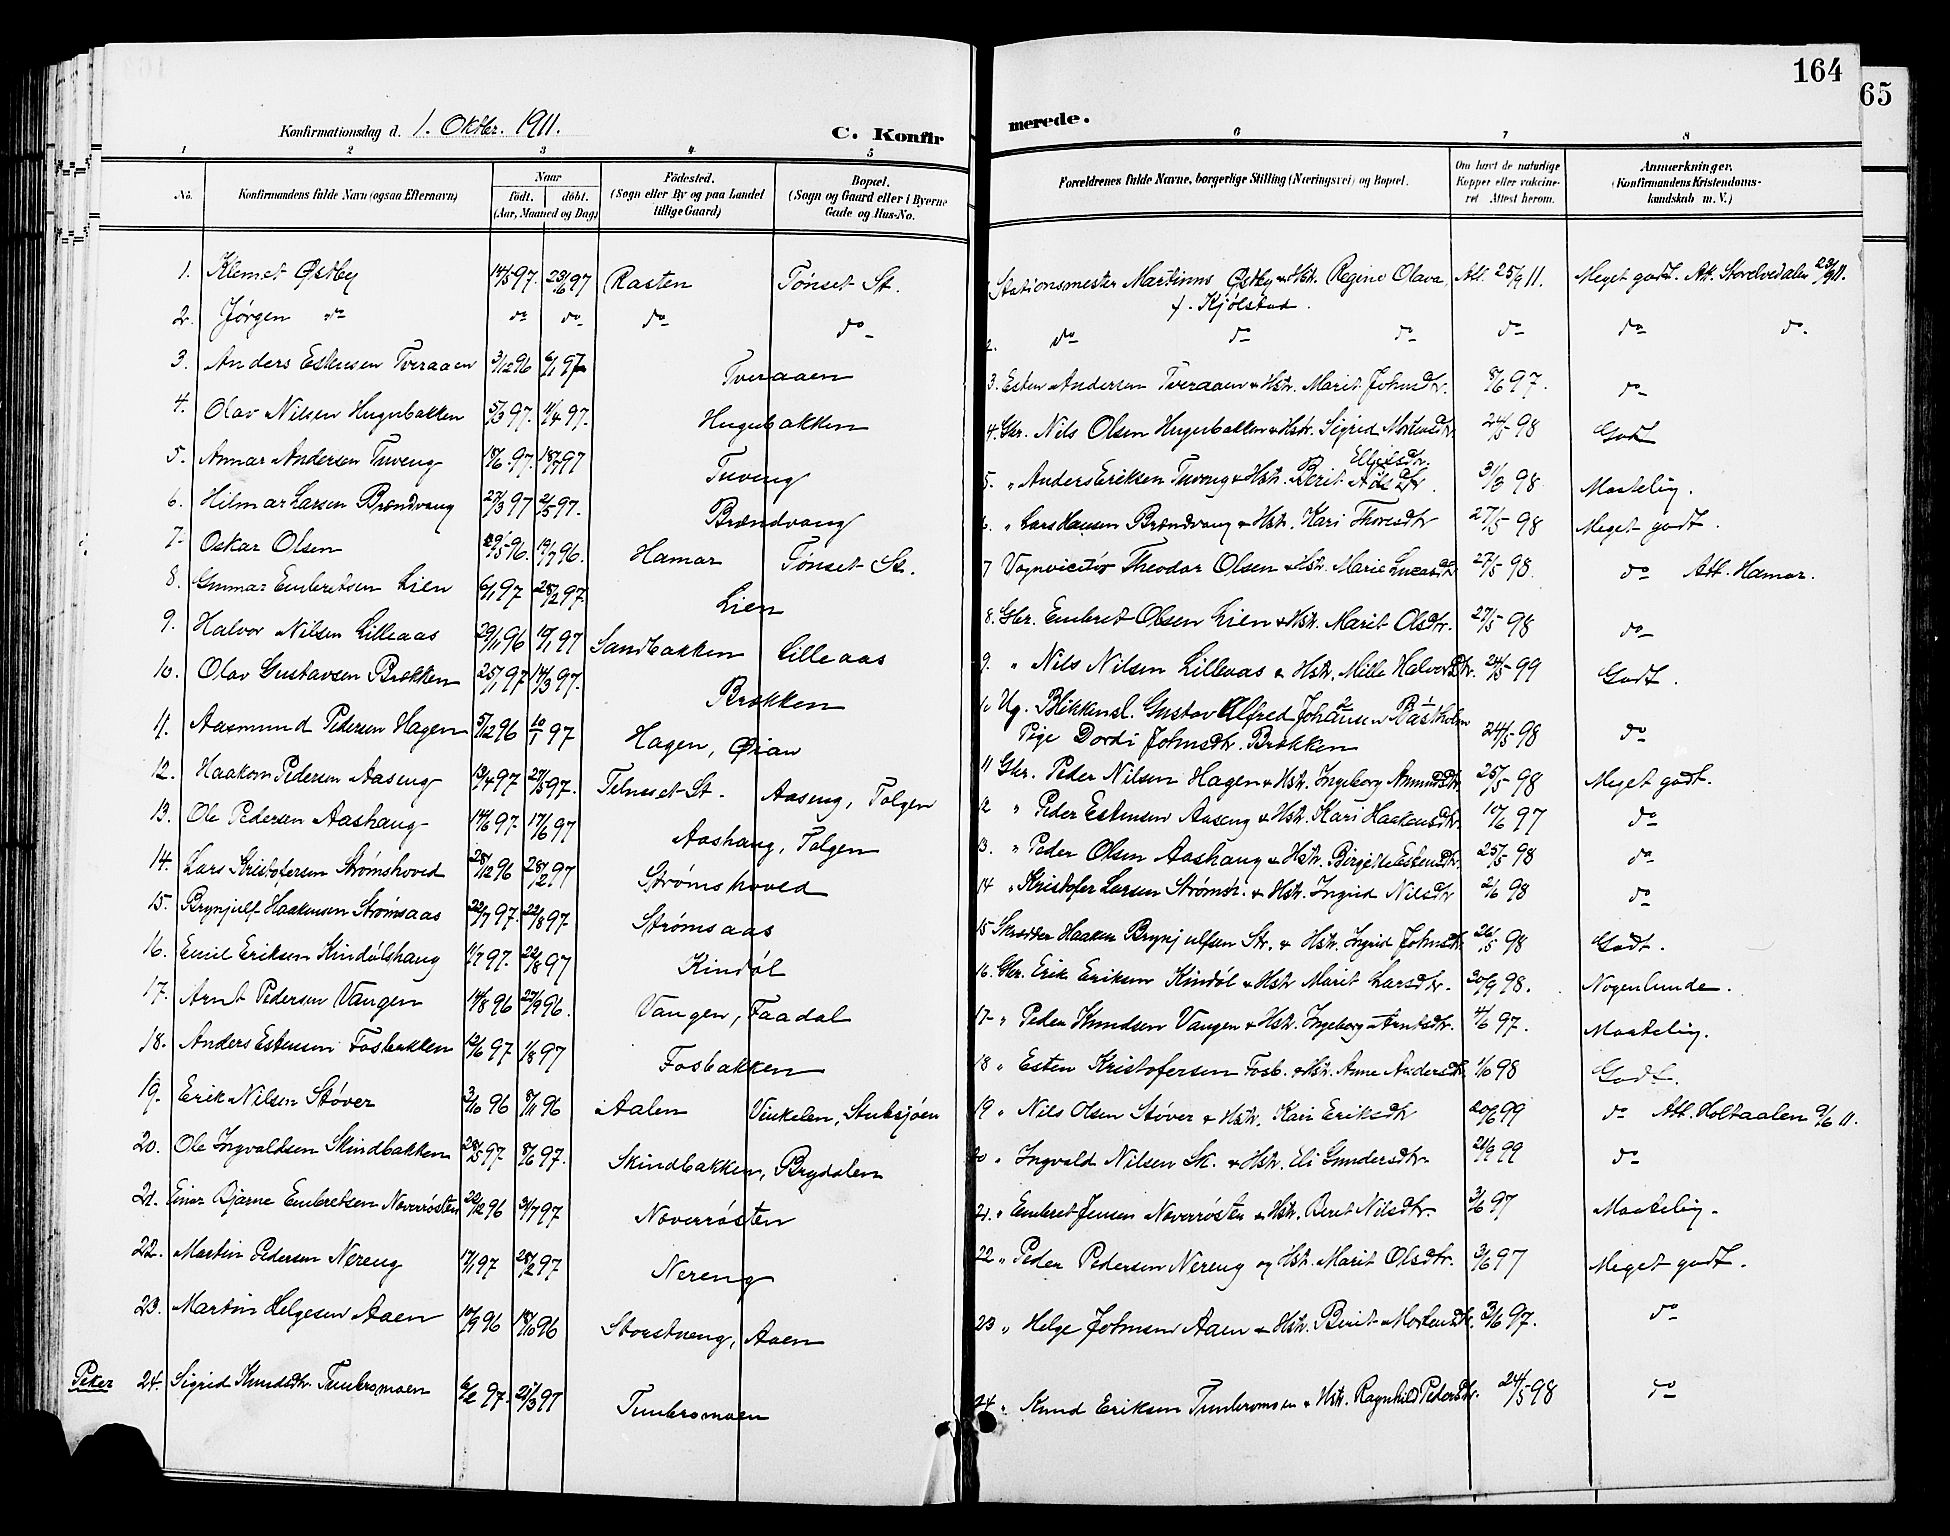 164
65
Konfirmationsdag d. 1. Oktbr. 1911.
C. Konfirmerede.
1 2 3 4 5 6 7 8
No. Konfirmandens fulde Navn (ogsaa Efternavn) Naar født. døbt. (Aar, Maaned og Dag) Fødested. (Sogn eller By og paa Landet tillige Gaard) Bopæl. (Sogn og Gaard eller i Byerne Gade og Hus-No. Forældrenes fulde Navne, borgerlige Stilling (Næringsvei) og Bopæl. Om havt de naturlige Kopper eller vaccineret. Attest herom. Anmærkninger. (Konfirmandens Kristendomskundskab m. V.)
1. Klemet Østby 14/5 97. 23/6 97 Rasten Tønset St. Stationsmester Martinus Østby & Hstr. Regine Olava f. Kjølstad. Att. 25/9 11. Meget godt. Att. Storelvedalen 23/9 11.
2. Jørgen do do do do do 2. do do do do do do
3. Anders Estensen Tveraaen 3/12 96 6/1 97 Tveraaen 3. Esten Andersen Tveraaen & Hstr. Marit Johnsdtr. 8/6 97. do
4. Olav Nilsen Hugubakken 5/3 97. 11/4 97. Hugubakken 4. Gbr. Nils Olsen Hugubakken & Hstr. Sigrid Mortensdtr. 24/5 98 Godt
5. Annar Andersen Tuveng 18/6 97. 18/7 97 Tuveng 5. " Anders Eriksen Tuveng & Hstr. Berit 31/3 98 Maatelig.
6. Hilmar Larsen Brændvang 27/3 97 2/5 97. Brændvang 6. " Lars Hansen Brændvang & Hstr. Kari Thoresdtr 27/5 98 Meget godt.
7. Oskar Olsen 29/5 96. 19/7 96. Hamar Tønset St. 7 Vognvisitør Theodor Olsen & Hstr. Marie Lucasdtr 27/5 98. do Att. Hamar.
8. Gunnar Embretsen Lien 6/1 97 28/2 97. Lien 8. Gbr. Embret Olsen Lien & Hstr. Marit Olsdtr. 27/5 98 do
9. Halvor Nilsen Lilleaas 29/11 96 17/1 97 Sandbakken Lilleaas 9. " Nils Nilsen Lilleaas & Hstr. Mille Halvorsdtr. 24/5 99 Godt.
10. Olav Gustavsen Brækken 25/1 97 14/3 97. Brækken 10 Ug. Blikkensl. Gustav Alfred Johansen Båstholm Pige Dordi Johnsdtr. Brækken 24/5 98 do
11. Aasmund Pedersen Hagen 5/12 96 10/1 97 Hagen, Øian 11 Gbr. Peder Nilsen Hagen & Hstr. Ingeborg Amundsdtr 25/5 98 Meget godt.
12. Haakon Pedersen Aaseng 13/4 97 27/5 97. Telneset St. Aaseng, Tolgen 12 " Peder Estensen Aaseng & Hstr. Kari Haakensdtr. 10/6 97 do
13. Ole Pedersen Aashaug 14/6 97. 17/6 97 Aashaug, Tolgen 13. " Peder Olsen Aashaug & Hstr. Birgitte Estensdtr. 25/5 98 do
14. Lars Kristofersen Strømshoved 28/12 96 28/2 97 Strømshoved 14 " Kristofer Larsen Strømsh. & Hstr. Ingrid Nilsdtr 2/6 98 do
15. Brynjulf Haakensen Strømsaas 22/7 97. 22/8 97. Strømsaas 15 Skrædder Haaken Brynjulfsen Str. & Hstr. Ingrid Johnsdtr 26/5 98 Godt.
16. Emil Eriksen Kindølshaug 11/7 97. 22/8 97 Kindøl 16. Gbr. Erik Eriksen Kindøl & Hstr Marit Larsdtr. 20/9 98. Nogenlunde.
17. Arnt Pedersen Vangen 14/8 96 27/9 96. Vangen, Faadal 17 " Peder Knudsen Vangen & Hstr. Ingeborg Arntsdtr. 4/6 97. Maatelig.
18. Anders Estensen Fosbakken 12/6 97 1/8 97 Fosbakken 18 " Esten Kristofersen Fosb. & Hstr. Anne Andersdtr. 1/6 98 Godt.
19. Erik Nilsen Støver 3/10 96 8/11 96 Aalen Vinkelen, Stubsjøen 19 " Nils Olsen Støver & Hstr. Kari Eriksdtr 20/6 99 do Att. Holtaalen 9/6 11.
20. Ole Ingvaldsen Skindbakken 28/5 97 8/6 97. Skindbakken, Brydalen 20 " Ingvald Nilsen Sk. & Hstr. Eli Gundersdtr. 21/9 99 do
21. Einar Bjarne Embretsen Noverrøsten 22/12 96 31/7 97 Noverrøsten 21. " Embret Jensen Noverrøsten & Hstr. Berit Nilsdtr. 3/6 97 Maatelig.
22. Martin Pedersen Nereng 17/1 97 28/2 97 Nereng 22 " Peder Pedersen Nereng og Hstr. Marit Olsdtr. 3/6 97 Meget godt.
23. Martin Helgesen Aaen 10/9 96 18/10 96 Storstveng, Aaen 23 " Helge Johnsen Aaen & Hstr. Berit Mortensdtr. 3/6 97. do
Piker 24. Sigrid Knudsdtr. Tunbrsmoen 6/2 97. 21/3 97 Tunbrsmoen 24 " Knud Eriksen Tunbrsmoen & Hstr. Ragnhild Pedersdtr. 24/5 98 do